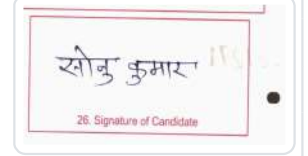 सोनु कुमार
26. Signature of Candidate